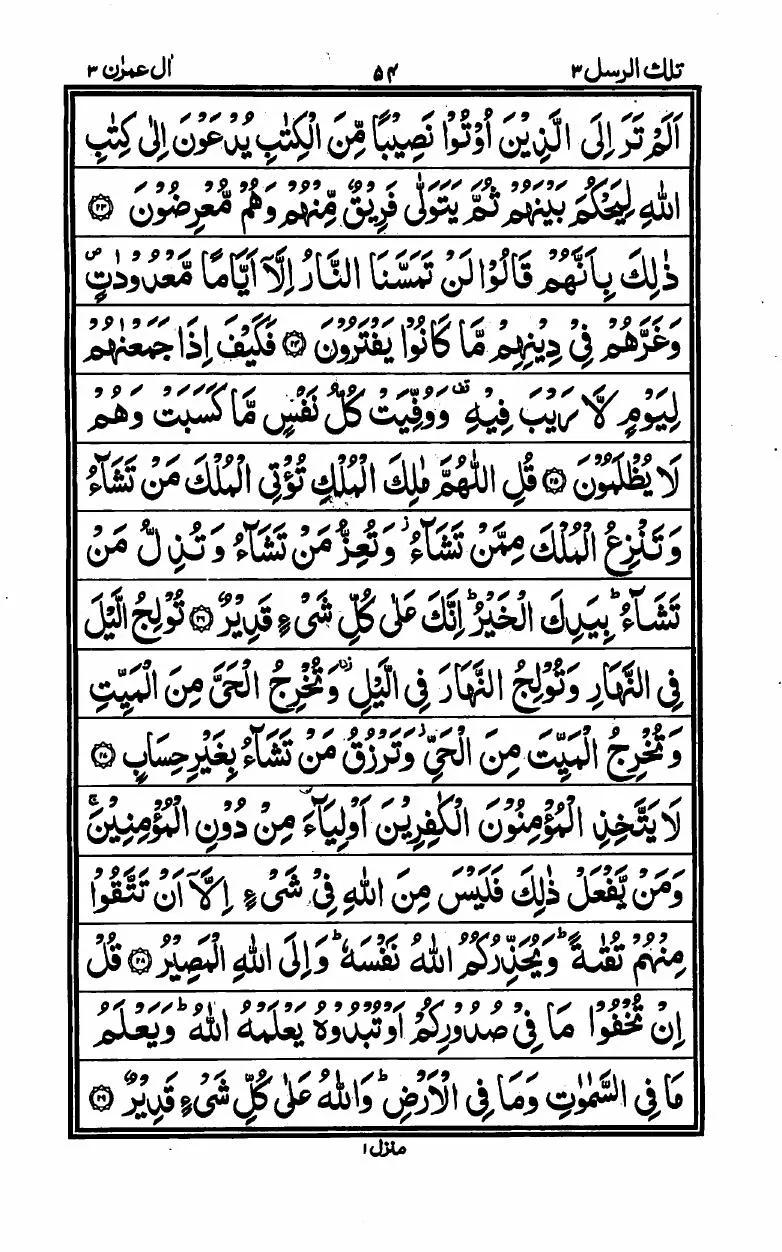 تلك الرسل ٣
۵۴
اٰل عمرٰن ٣
اَلَمْ تَرَ اِلَى الَّذِيْنَ اُوْتُوْا نَصِيْبًا مِّنَ الْكِتٰبِ يُدْعَوْنَ اِلٰى كِتٰبِ
اللّٰهِ لِيَحْكُمَ بَيْنَهُمْ ثُمَّ يَتَوَلّٰى فَرِيْقٌ مِّنْهُمْ وَهُمْ مُّعْرِضُوْنَ ۝۲۳
ذٰلِكَ بِاَنَّهُمْ قَالُوْا لَنْ تَمَسَّنَا النَّارُ اِلَّاۤ اَيَّامًا مَّعْدُوْدٰتٍ ۪
وَغَرَّهُمْ فِيْ دِيْنِهِمْ مَّا كَانُوْا يَفْتَرُوْنَ ۝۲۴ فَكَيْفَ اِذَا جَمَعْنٰهُمْ
لِيَوْمٍ لَّا رَيْبَ فِيْهِ ۫ وَوُفِّيَتْ كُلُّ نَفْسٍ مَّا كَسَبَتْ وَهُمْ
لَا يُظْلَمُوْنَ ۝۲۵ قُلِ اللّٰهُمَّ مٰلِكَ الْمُلْكِ تُؤْتِي الْمُلْكَ مَنْ تَشَآءُ
وَتَنْزِعُ الْمُلْكَ مِمَّنْ تَشَآءُ ۡ وَتُعِزُّ مَنْ تَشَآءُ وَتُذِلُّ مَنْ
تَشَآءُ ؕ بِيَدِكَ الْخَيْرُ ؕ اِنَّكَ عَلٰى كُلِّ شَيْءٍ قَدِيْرٌ ۝۲۶ تُوْلِجُ الَّيْلَ
فِي النَّهَارِ وَتُوْلِجُ النَّهَارَ فِي الَّيْلِ ۡ وَتُخْرِجُ الْحَيَّ مِنَ الْمَيِّتِ
وَتُخْرِجُ الْمَيِّتَ مِنَ الْحَيِّ ۡ وَتَرْزُقُ مَنْ تَشَآءُ بِغَيْرِ حِسَابٍ ۝۲۷
لَا يَتَّخِذِ الْمُؤْمِنُوْنَ الْكٰفِرِيْنَ اَوْلِيَآءَ مِنْ دُوْنِ الْمُؤْمِنِيْنَ ۚ
وَمَنْ يَّفْعَلْ ذٰلِكَ فَلَيْسَ مِنَ اللّٰهِ فِيْ شَيْءٍ اِلَّاۤ اَنْ تَتَّقُوْا
مِنْهُمْ تُقٰىةً ؕ وَيُحَذِّرُكُمُ اللّٰهُ نَفْسَهٗ ؕ وَاِلَى اللّٰهِ الْمَصِيْرُ ۝۲۸ قُلْ
اِنْ تُخْفُوْا مَا فِيْ صُدُوْرِكُمْ اَوْ تُبْدُوْهُ يَعْلَمْهُ اللّٰهُ ؕ وَيَعْلَمُ
مَا فِي السَّمٰوٰتِ وَمَا فِي الْاَرْضِ ؕ وَاللّٰهُ عَلٰى كُلِّ شَيْءٍ قَدِيْرٌ ۝۲۹
منزل ١